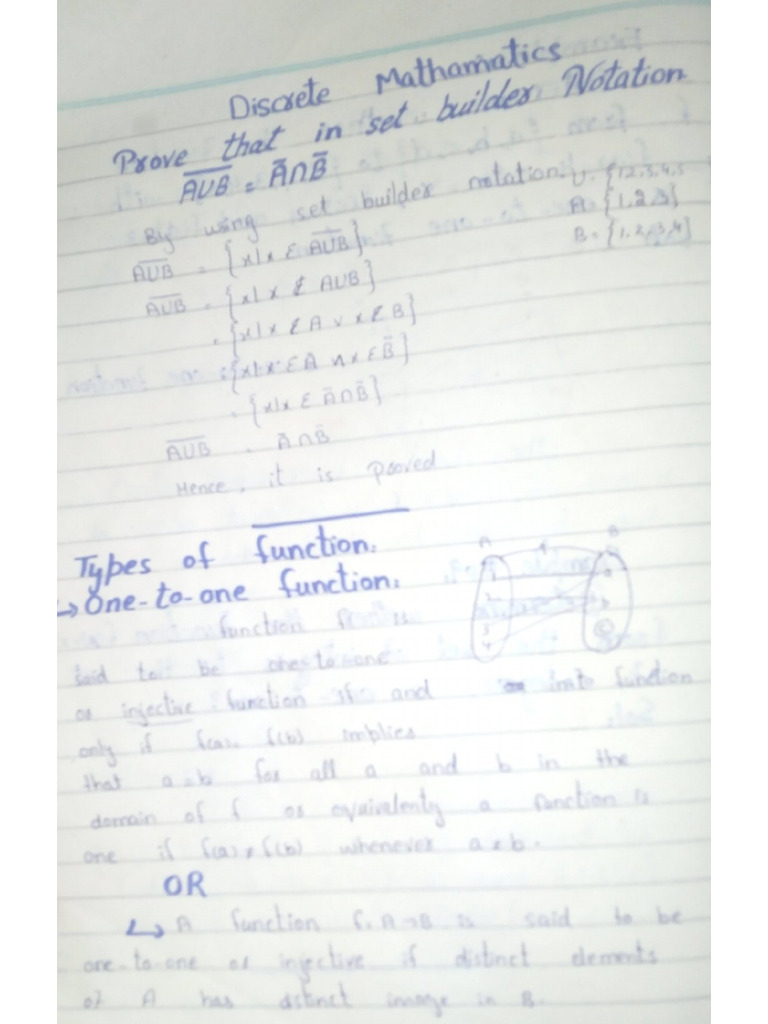 Discrete Mathamatics
Prove that in set builder Notation
A̅U̅B̅ = A̅∩B̅
By using set builder notation: U = {1,2,3,4,5
A = {1,2,3}
B = {1,2,3,4}
A̅U̅B̅ = {x|x ∈ A̅U̅B̅}
A̅U̅B̅ = {x|x ∉ AUB}
= {x|x ∉ A ∨ x ∉ B}
= {x|x ∈ A̅ ∧ x ∈ B̅}
= {x|x ∈ A̅∩B̅}
A̅U̅B̅ = A̅∩B̅
Hence, it is proved
Types of function.
→ One-to-one function.
A B
function f is
said to be one to one
or injective function if and into function
only if f(a) = f(b) implies
that a=b for all a and b in the
domain of f or equivalently a function is
one if f(a) ≠ f(b) whenever a ≠ b.
OR
↳ A function f: A→B is said to be
one-to-one or injective if distinct elements
of A has distnct image in B.